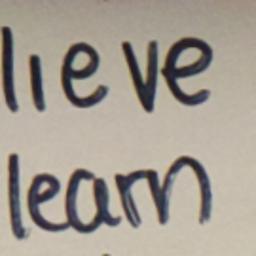 lieve
learn